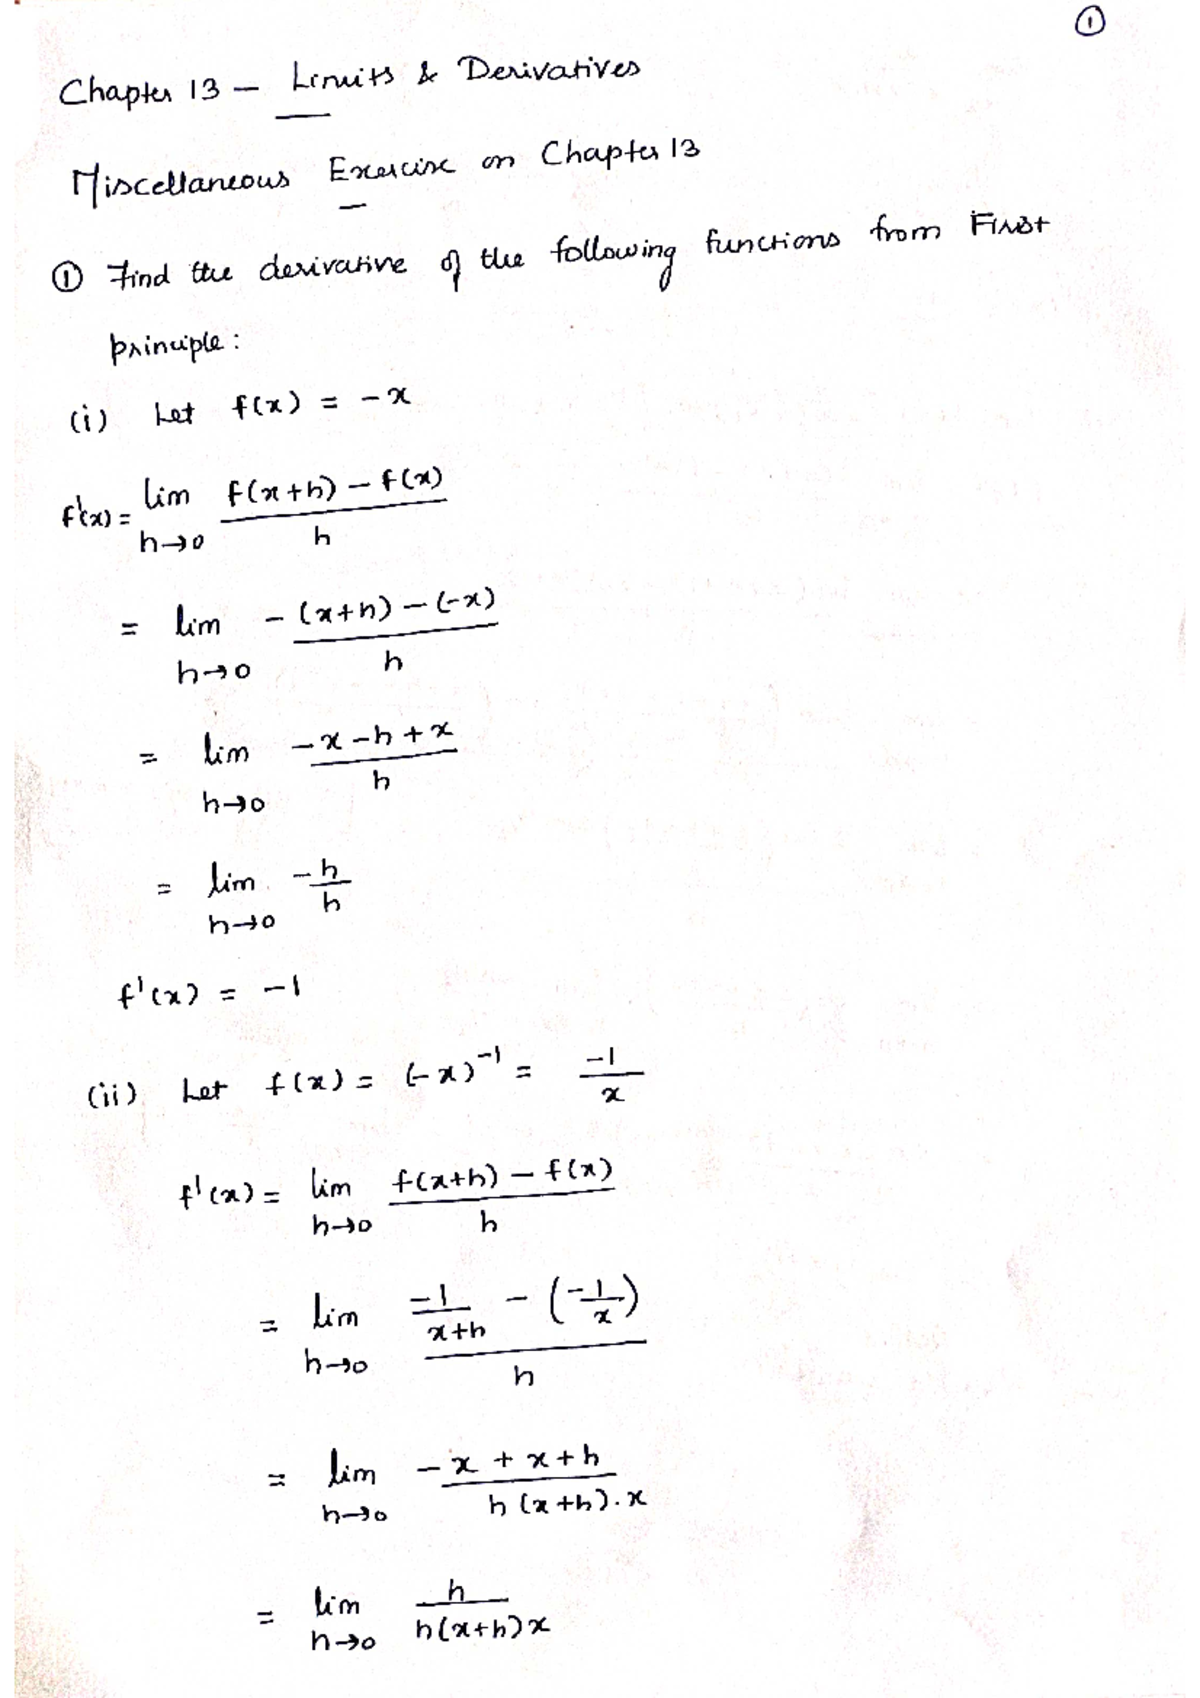 ①
Chapter 13 – Limits & Derivatives
Miscellaneous Exercise on Chapter 13
① Find the derivative of the following functions from First
principle:
(i) Let f(x) = -x
f'(x) = lim h→0 (f(x+h) - f(x))/h
= lim h→0 (-(x+h) - (-x))/h
= lim h→0 (-x-h+x)/h
= lim h→0 -h/h
f'(x) = -1
(ii) Let f(x) = (-x)^-1 = -1/x
f'(x) = lim h→0 (f(x+h) - f(x))/h
= lim h→0 (-1/(x+h) - (-1/x))/h
= lim h→0 (-x+x+h)/(h(x+h).x)
= lim h→0 h/(h(x+h)x)